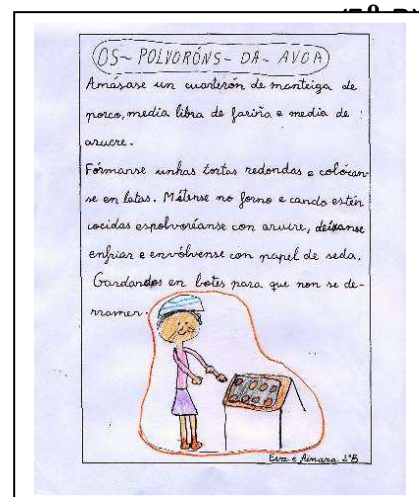 OS~ POLVORÓNS~ DA~ AVOA
Amásase un cuarterón de manteiga de
porco, media libra de fariña e media de
azucre.
Fórmanse unhas tortas redondas e colócan-
se en latas. Métense no forno e cando estén
cocidas espolvoréanse con azucre, déixanse
enfriar e envólvense con papel de seda.
Gardandos en botes para que non se de-
rramen.
Eva e Ainara 2ºB